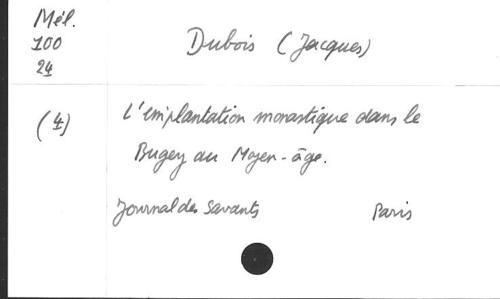 Mél.
100
24
Dubois (Jacques)
(4)
L'implantation monastique dans le
Bugey au Moyen-âge.
Journal des Savants Paris